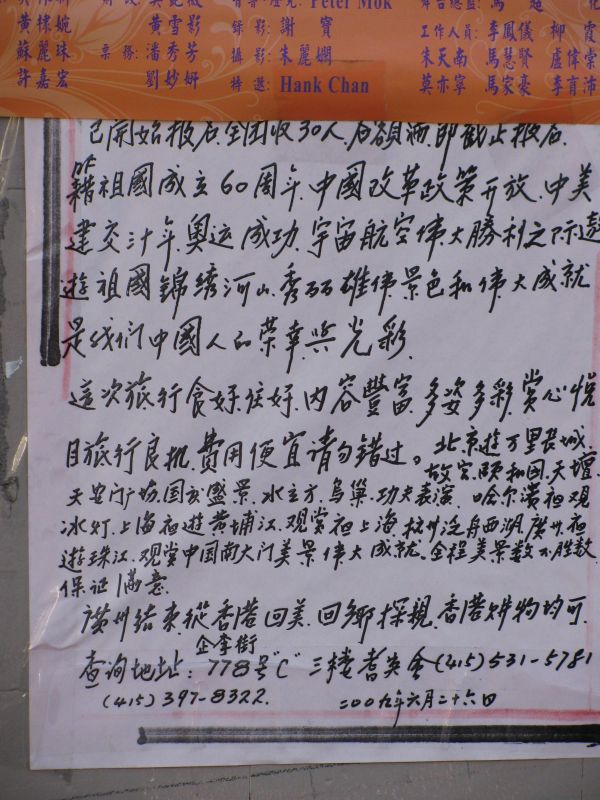 攝影：Peter Mok
黄棣婉 黄雪影 錄影：謝寶 工作人員：李鳳儀 柳霞
蘇麗珠 票務：潘秀芳 攝影：朱麗嫻 朱天南 馬慧賢 盧偉常
許嘉宏 劉妙妍 特邀：Hank Chan 莫亦寧 馬家豪 李育沛
已開始报名.全团收30人.名額满.即截止报名.
欣
籍祖國成立60周年.中國改革政策开放.中美
建交卅年.奥运成功.宇宙航空伟大勝利之际.遨
遊祖國錦綉河山.秀丽雄伟景色和伟大成就
是我们中國人的荣幸與光彩.
這次旅行食好住好.内容豐富.多姿多彩.赏心悦
目旅行良机.費用便宜请勿错过。北京遊万里長城.
故宫.颐和园.天壇.
天安门广场.国庆盛景.水立方.鸟巢.功夫表演.哈尔濱夜观
冰灯.上海夜遊黄埔江.观赏夜上海.杭州泛舟西湖.廣州夜
遊珠江.观赏中国南大门美景伟大成就.全程美景数不胜数
保证满意.
廣州结束從香港回美.回鄉探親.香港购物均可.
企李街
查询地址：778号"C"三楼耆英会(415)531-5781
(415)397-8322. 二00九年六月二十六日